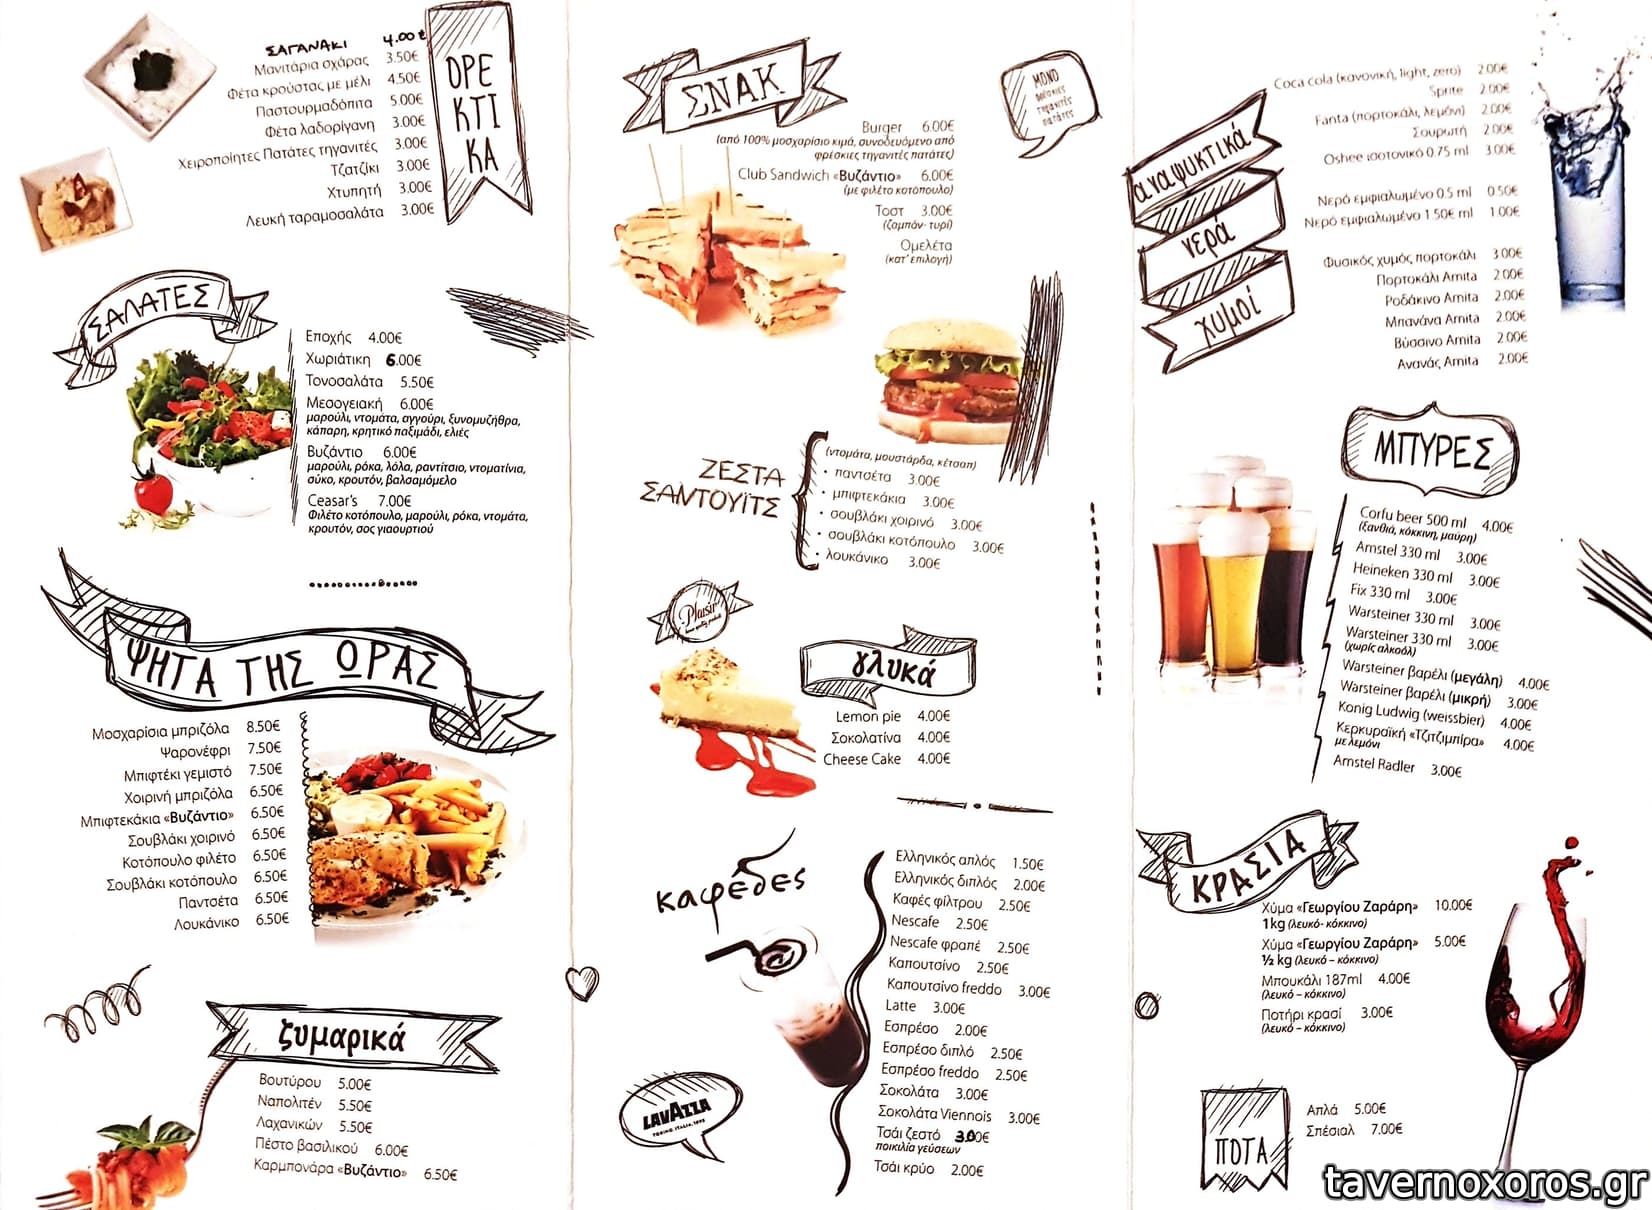 ΣΑΓΑΝΑΚΙ 4.00€
Μανιτάρια σχάρας 3.50€
Φέτα κρούστας με μέλι 4.50€
Παστουρμαδόπιτα 5.00€
Φέτα λαδορίγανη 3.00€
Χειροποίητες Πατάτες τηγανιτές 3.00€
Τζατζίκι 3.00€
Χτυπητή 3.00€
Λευκή ταραμοσαλάτα 3.00€
ΟΡΕ
ΚΤΙ
ΚΑ
ΣΑΛΑΤΕΣ
Εποχής 4.00€
Χωριάτικη 6.00€
Τονοσαλάτα 5.50€
Μεσογειακή 6.00€
μαρούλι, ντομάτα, αγγούρι, ξυνομυζήθρα,
κάπαρη, κρητικό παξιμάδι, ελιές
Βυζάντιο 6.00€
μαρούλι, ρόκα, λόλα, ραντίτσιο, ντοματίνια,
σύκο, κρουτόν, βαλσαμόμελο
Ceasar's 7.00€
Φιλέτο κοτόπουλο, μαρούλι, ρόκα, ντομάτα,
κρουτόν, σος γιαουρτιού
ΨΗΤΑ ΤΗΣ ΩΡΑΣ
Μοσχαρίσια μπριζόλα 8.50€
Ψαρονέφρι 7.50€
Μπιφτέκι γεμιστό 7.50€
Χοιρινή μπριζόλα 6.50€
Μπιφτεκάκια «Βυζάντιο» 6.50€
Σουβλάκι χοιρινό 6.50€
Κοτόπουλο φιλέτο 6.50€
Σουβλάκι κοτόπουλο 6.50€
Παντσέτα 6.50€
Λουκάνικο 6.50€
ζυμαρικά
Βουτύρου 5.00€
Ναπολιτέν 5.50€
Λαχανικών 5.50€
Πέστο βασιλικού 6.00€
Καρμπονάρα «Βυζάντιο» 6.50€
ΣΝΑΚ
ΜΟΝΟ
φρέσκιες
τηγανιτές
πατάτες
Burger 6.00€
(από 100% μοσχαρίσιο κιμά, συνοδευόμενο από
φρέσκιες τηγανιτές πατάτες)
Club Sandwich «Βυζάντιο» 6.00€
(με φιλέτο κοτόπουλο)
Τοστ 3.00€
(ζαμπόν- τυρί)
Ομελέτα
(κατ' επιλογή)
ΖΕΣΤΑ
ΣΑΝΤΟΥΙΤΣ
(ντομάτα, μουστάρδα, κέτσαπ)
· παντσέτα 3.00€
· μπιφτεκάκια 3.00€
· σουβλάκι χοιρινό 3.00€
· σουβλάκι κοτόπουλο 3.00€
· λουκάνικο 3.00€
Plaisir
γλυκά
Lemon pie 4.00€
Σοκολατίνα 4.00€
Cheese Cake 4.00€
καφέδες
Ελληνικός απλός 1.50€
Ελληνικός διπλός 2.00€
Καφές φίλτρου 2.50€
Nescafe 2.50€
Nescafe φραπέ 2.50€
Καπουτσίνο 2.50€
Καπουτσίνο freddo 3.00€
Latte 3.00€
Εσπρέσο 2.00€
Εσπρέσο διπλό 2.50€
Εσπρέσο freddo 2.50€
Σοκολάτα 3.00€
Σοκολάτα Viennois 3.00€
Τσάι ζεστό 3.00€
ποικιλία γεύσεων
Τσάι κρύο 2.00€
LAVAZZA
TORINO, ITALIA, 1895
αναψυκτικά
νερά
χυμοί
Coca cola (κανονική, light, zero) 2.00€
Sprite 2.00€
Fanta (πορτοκάλι, λεμόνι) 2.00€
Σουρωτή 2.00€
Oshee ισοτονικό 0.75 ml 3.00€
Νερό εμφιαλωμένο 0.5 ml 0.50€
Νερό εμφιαλωμένο 1.50€ ml 1.00€
Φυσικός χυμός πορτοκάλι 3.00€
Πορτοκάλι Amita 2.00€
Ροδάκινο Amita 2.00€
Μπανάνα Amita 2.00€
Βύσσινο Amita 2.00€
Ανανάς Amita 2.00€
ΜΠΥΡΕΣ
Corfu beer 500 ml 4.00€
(ξανθιά, κόκκινη, μαύρη)
Amstel 330 ml 3.00€
Heineken 330 ml 3.00€
Fix 330 ml 3.00€
Warsteiner 330 ml 3.00€
Warsteiner 330 ml 3.00€
(χωρίς αλκοόλ)
Warsteiner βαρέλι (μεγάλη) 4.00€
Warsteiner βαρέλι (μικρή) 3.00€
Konig Ludwig (weissbier) 4.00€
Κερκυραϊκή «Τζιτζιμπίρα» 4.00€
με λεμόνι
Amstel Radler 3.00€
ΚΡΑΣΙΑ
Χύμα «Γεωργίου Ζαράρη» 10.00€
1kg (λευκό- κόκκινο)
Χύμα «Γεωργίου Ζαράρη» 5.00€
½ kg (λευκό – κόκκινο)
Μπουκάλι 187ml 4.00€
(λευκό – κόκκινο)
Ποτήρι κρασί 3.00€
(λευκό – κόκκινο)
ΠΟΤΑ
Απλά 5.00€
Σπέσιαλ 7.00€
tavernoxoros.gr